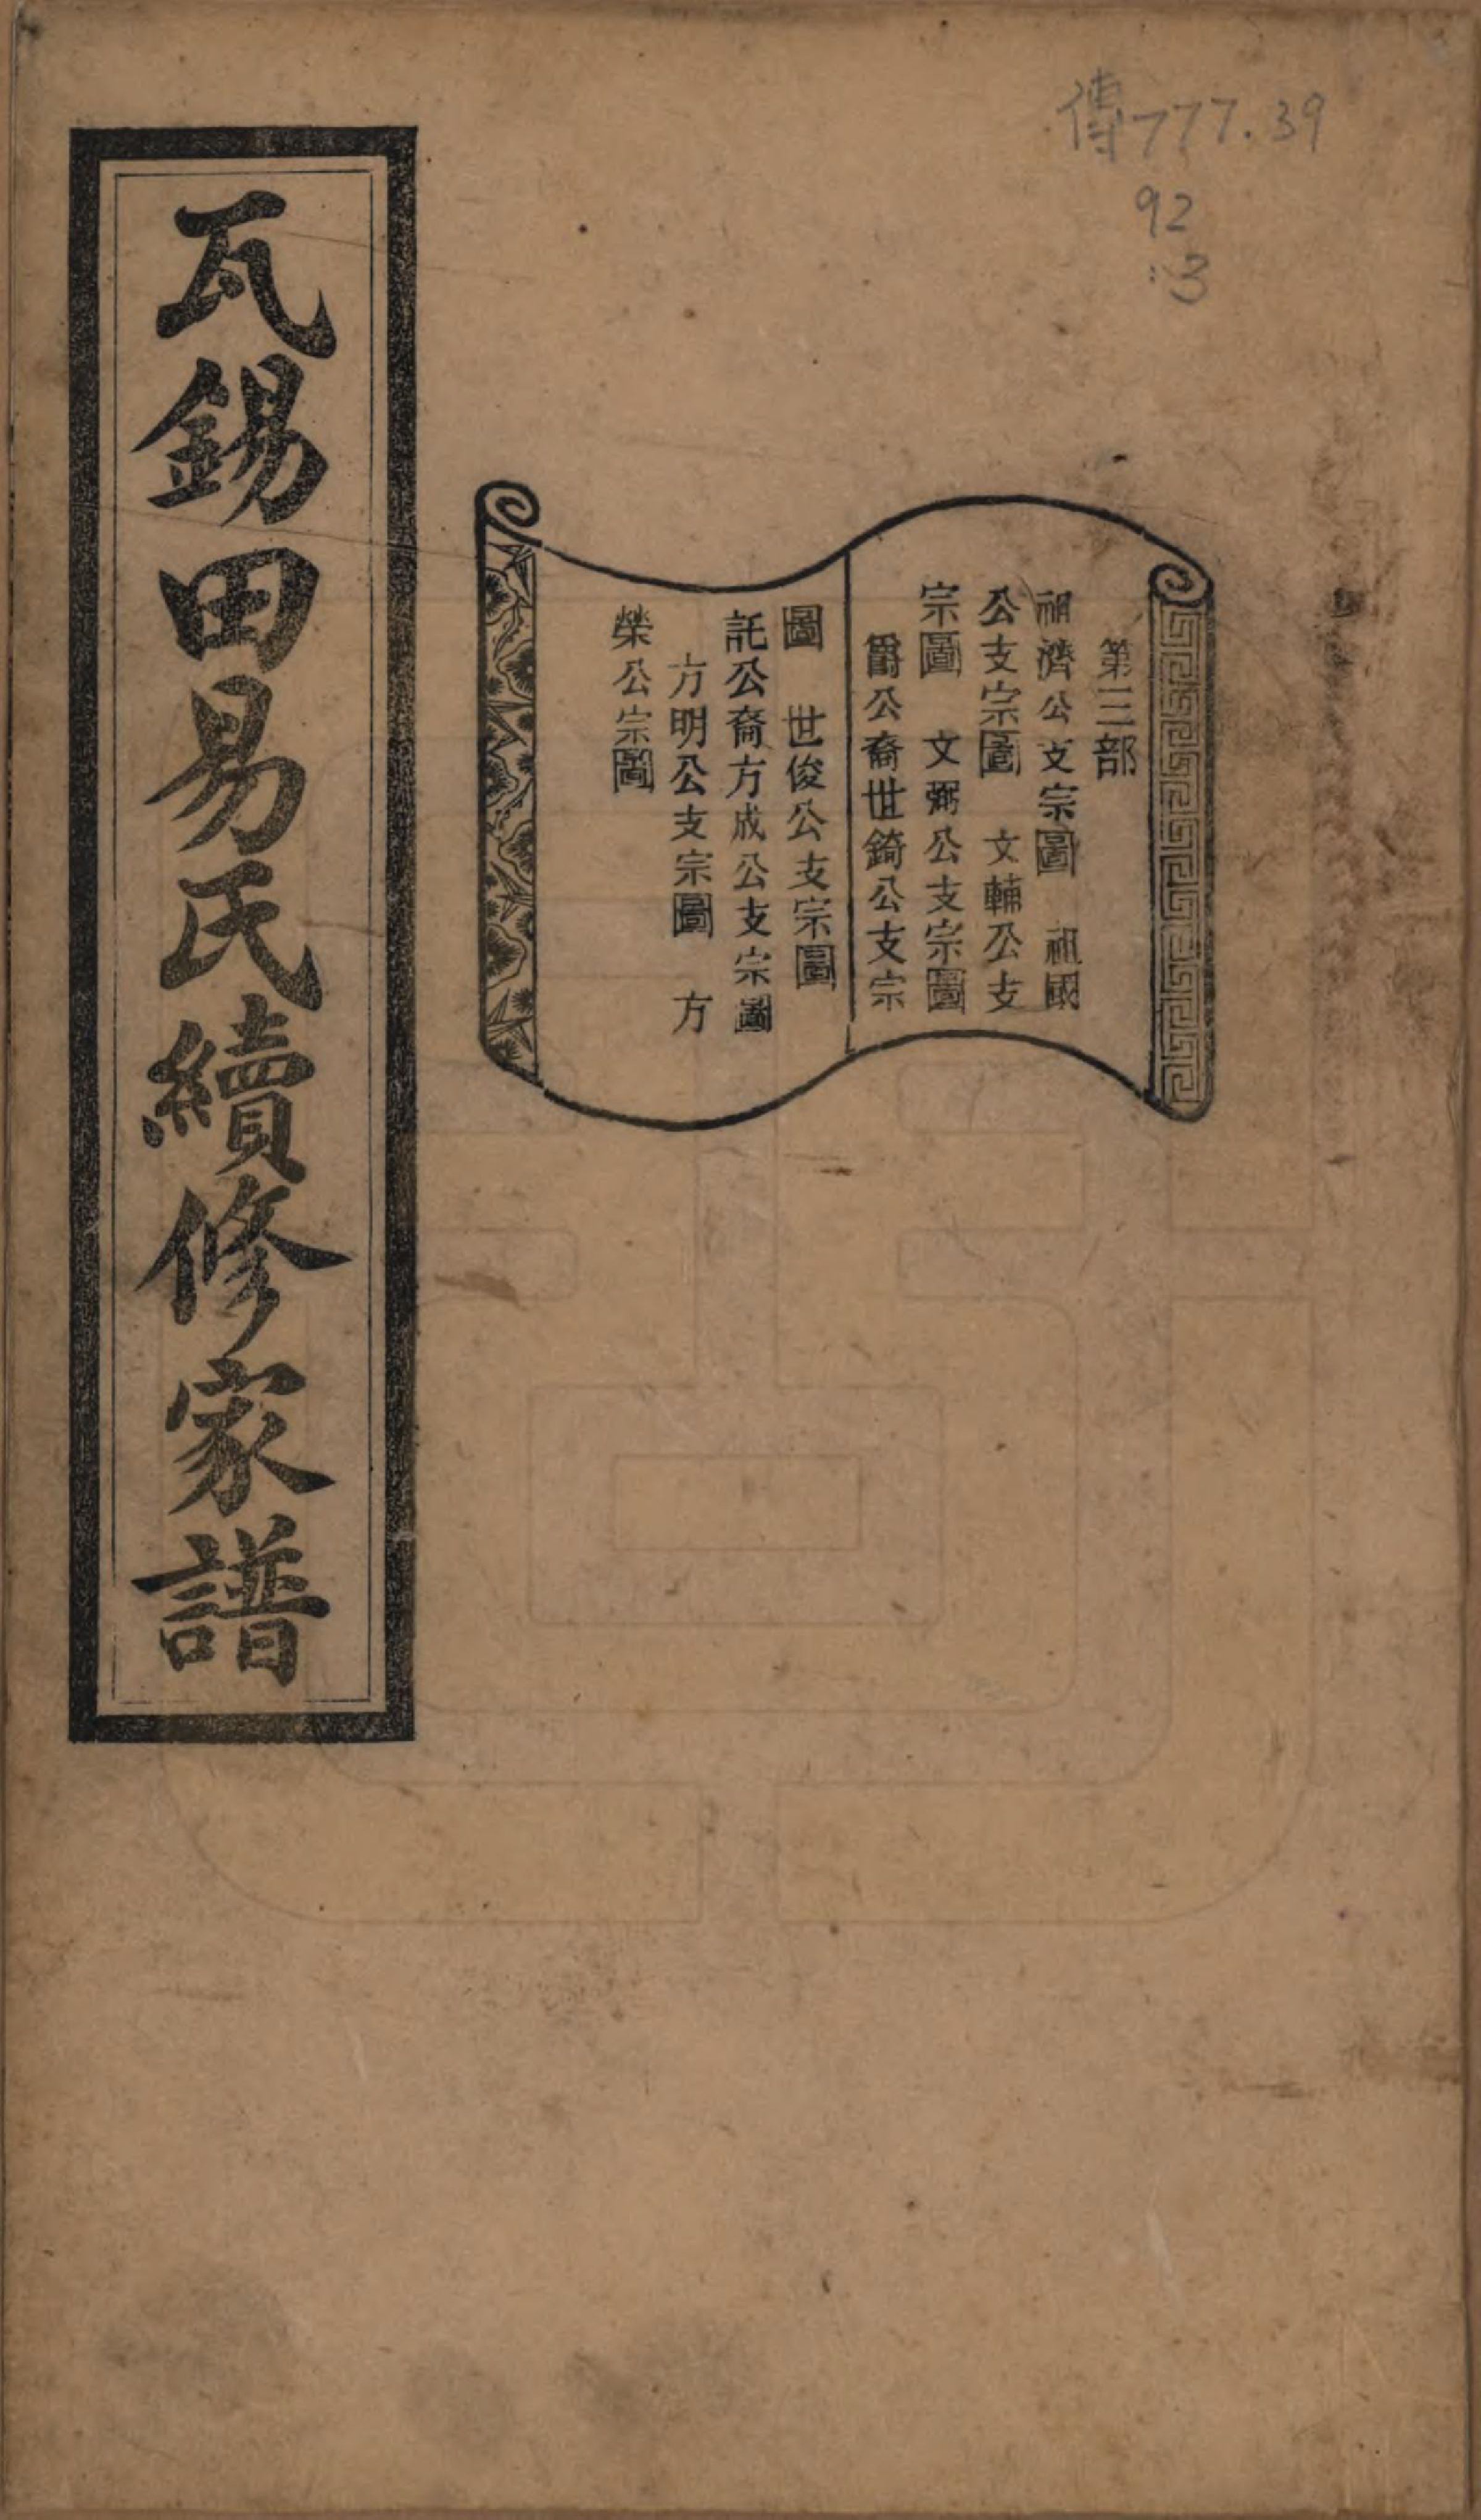 傳777.39
92
:3
第三部
祖濟公支宗圖　祖國
公支宗圖　文輔公支
宗圖　文弼公支宗圖
爵公裔世錡公支宗
圖　世俊公支宗圖
託公裔方成公支宗圖
方明公支宗圖　方
榮公宗圖
瓦錫田易氏續修家譜